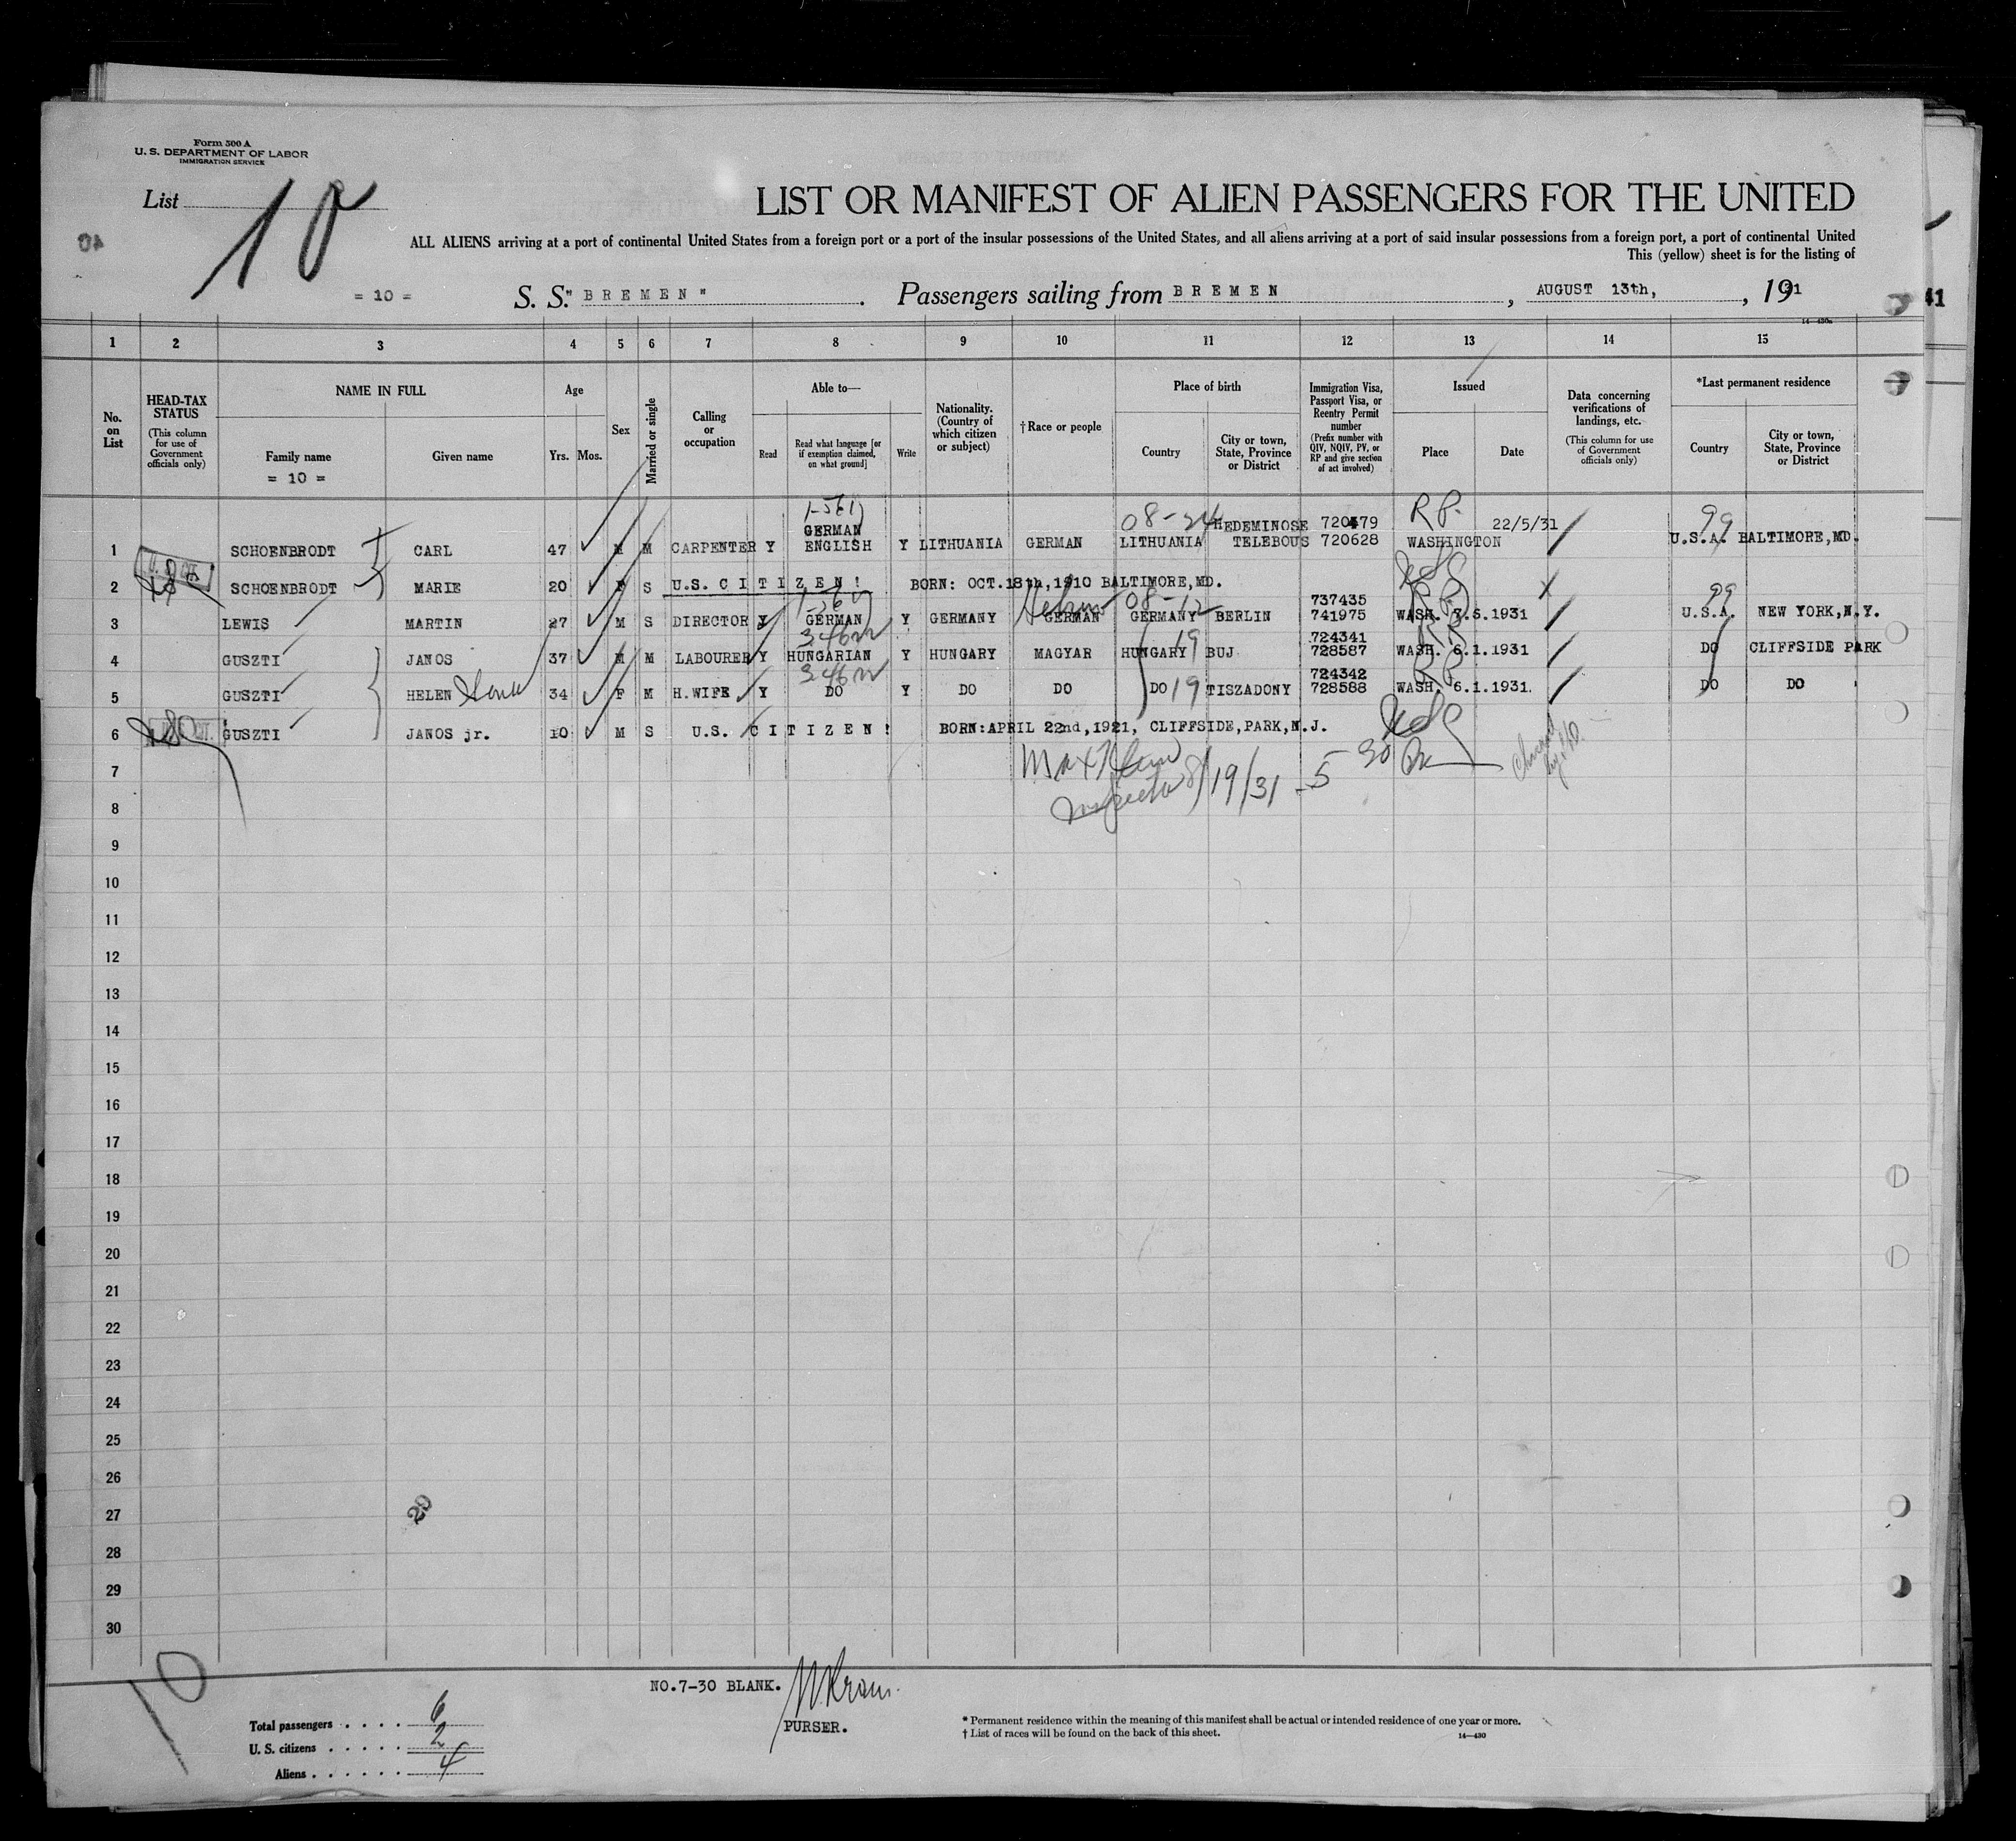 Form 500 A
U. S. DEPARTMENT OF LABOR
IMMIGRATION SERVICE
List 10
LIST OR MANIFEST OF ALIEN PASSENGERS FOR THE UNITED
ALL ALIENS arriving at a port of continental United States from a foreign port or a port of the insular possessions of the United States, and all aliens arriving at a port of said insular possessions from a foreign port, a port of continental United
This (yellow) sheet is for the listing of
= 10 = S. S. "BREMEN" . Passengers sailing from BREMEN , AUGUST 13th, , 1931
41
1 2 3 4 5 6 7 8 9 10 11 12 13 14 15
No. on List
HEAD-TAX STATUS (This column for use of Government officials only)
NAME IN FULL
Family name
= 10 =
Given name
Age
Yrs. Mos.
Sex
Married or single
Calling or occupation
Able to—
Read
Read what language [or if exemption claimed, on what ground]
Write
Nationality. (Country of which citizen or subject)
† Race or people
Place of birth
Country
City or town, State, Province or District
Immigration Visa, Passport Visa, or Reentry Permit number (Prefix number with QIV, NQIV, PV, or RP and give section of act involved)
Issued
Place
Date
Data concerning verifications of landings, etc. (This column for use of Government officials only)
*Last permanent residence
Country
City or town, State, Province or District
1-561 08-24 RP. 99
1 SCHOENBRODT CARL 47 M M CARPENTER Y GERMAN ENGLISH Y LITHUANIA GERMAN LITHUANIA HEDEMINOSE TELEBOUS 720479 720628 WASHINGTON 22/5/31 U.S.A. BALTIMORE,MD.
2 SCHOENBRODT MARIE 20 F S U.S. CITIZEN! BORN: OCT.18th,1910 BALTIMORE,MD. X
Hebrew 08-12 RP 99
3 LEWIS MARTIN 27 M S DIRECTOR Y GERMAN Y GERMANY GERMAN GERMANY BERLIN 737435 741975 WASH. U.S.A. NEW YORK,N.Y.
19 RP
4 GUSZTI JANOS 37 M M LABOURER Y HUNGARIAN Y HUNGARY MAGYAR HUNGARY BUJ 724341 728587 WASH. 6.1.1931 DO CLIFFSIDE PARK
RP
5 GUSZTI HELEN 34 F M H.WIFE Y DO Y DO DO DO 19 TISZADONY 724342 728588 WASH. 6.1.1931. DO DO
6 GUSZTI JANOS jr. 10 M S U.S. CITIZEN! BORN:APRIL 22nd,1921, CLIFFSIDE,PARK,N.J.
7
Inspector 8/19/31
8
9
10
11
12
13
14
15
16
17
18
19
20
21
22
23
24
25
26
27
28
29
30
10
NO.7-30 BLANK.
PURSER.
Total passengers . . . . 6
U. S. citizens . . . . . 2
Aliens . . . . . . 4
* Permanent residence within the meaning of this manifest shall be actual or intended residence of one year or more.
† List of races will be found on the back of this sheet.
14—430